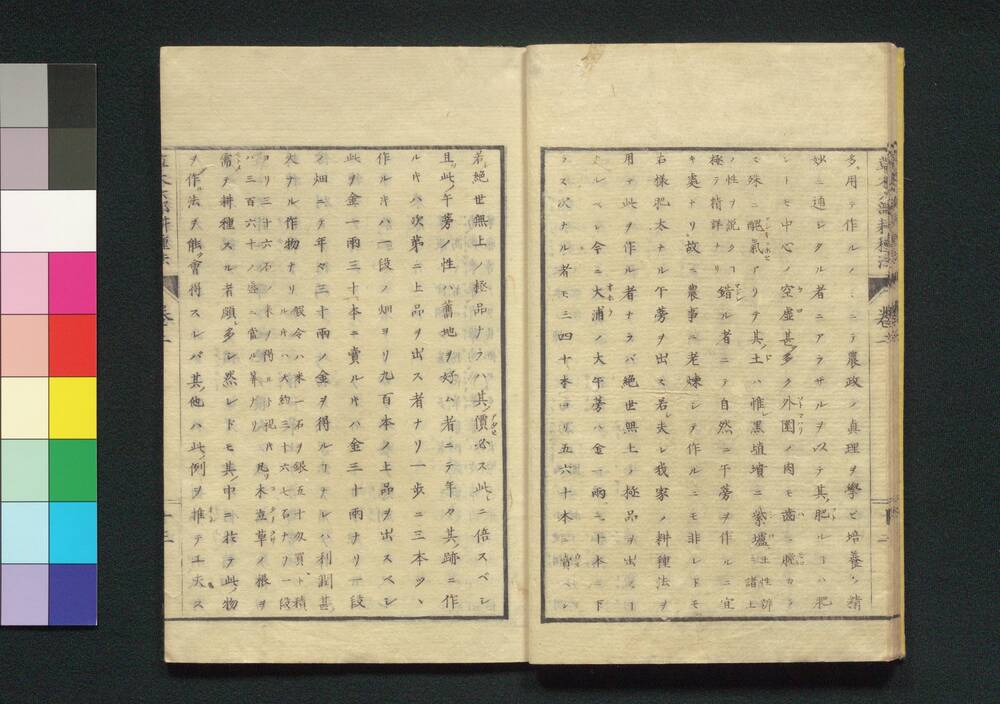 多ク用テ作ルノミニテ農政ノ真理ヲ學ビ培養ノ精
妙ニ通レタル者ニアラザルヲ以テ其肥ルコハ肥
レトモ中心ノ空虚甚多ク外圍ノ肉モ齒ニ脆カラ
ズ殊ニ醜氣アリテ其土ハ惟黒埴墳ニ紫壚
土性辨ニ諸土ノ性ヲ説クコ極テ精詳ナリ
錯ル者ニテ自然ニ午蒡ヲ作ルニ宜
キ處ナリ故ニ農事ニ老煉シテ作ルニモ非レドモ
右様肥大ナル午蒡ヲ出ス若レ夫レ我家ノ耕種法ヲ
用テ此ヲ作ル者ナラバ絶世無上ノ極品ヲ出スコ
ナルベシ今ニ大浦ノ大午蒡ハ金一兩ニ二十本ニ下
ラズ次ナル者モ三四十本ヨリ五六十本ニ賣ベシ
若絶世無上ノ極品ナラハ其價必ス此ニ倍スベシ
且此午蒡ノ性ハ舊地ヲ好ム者ニテ年々其跡ニ作
ルキハ次第ニ上品ヲ出ス者ナリ一歩ニ三本ヅヽ
作ルキハ一段ノ畑ヨリ九百本ノ上品ヲ出スベシ
此ヲ金一兩三十本ニ賣ルキハ金三十兩ナリ一段
ノ畑ニテ年々三十兩ノ金ヲ得ルコナレハ利潤甚
大ナル作物ナリ
假令ハ米一石ヲ銀五十匁買ト積ルキハ大約三十六七石ナリ一段
ヨリ三十六石ノ米ヲ得ルト祝キハ三百六十ノ盛ニ當ル算ナリ
凡ソ木直草ノ根ヲ
需テ耕種スル者頗多シ然レドモ其中ニ抜テ此物
ヲ作法ヲ能會得スレバ其他ハ此例ヲ推テ工夫ス
卷二
十三